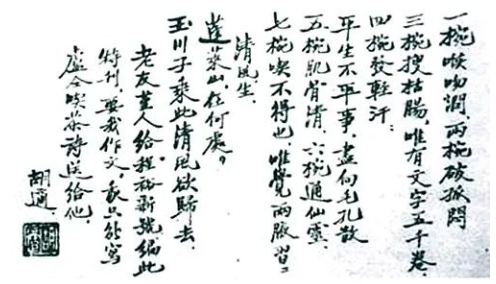 一椀喉吻潤，兩椀破孤悶
三椀搜枯腸，唯有文字五千卷，
四椀發輕汗：
平生不平事，盡向毛孔散
五椀肌骨清，六椀通仙靈，
七椀喫不得也，唯覺兩腋習〻
清風生，
蓬萊山，在何處，
玉川子乘此清風欲歸去，
老友堇人給程裕新號編此
特刊，要我作文，我只寫
盧仝喫茶詩送給他，
胡適，